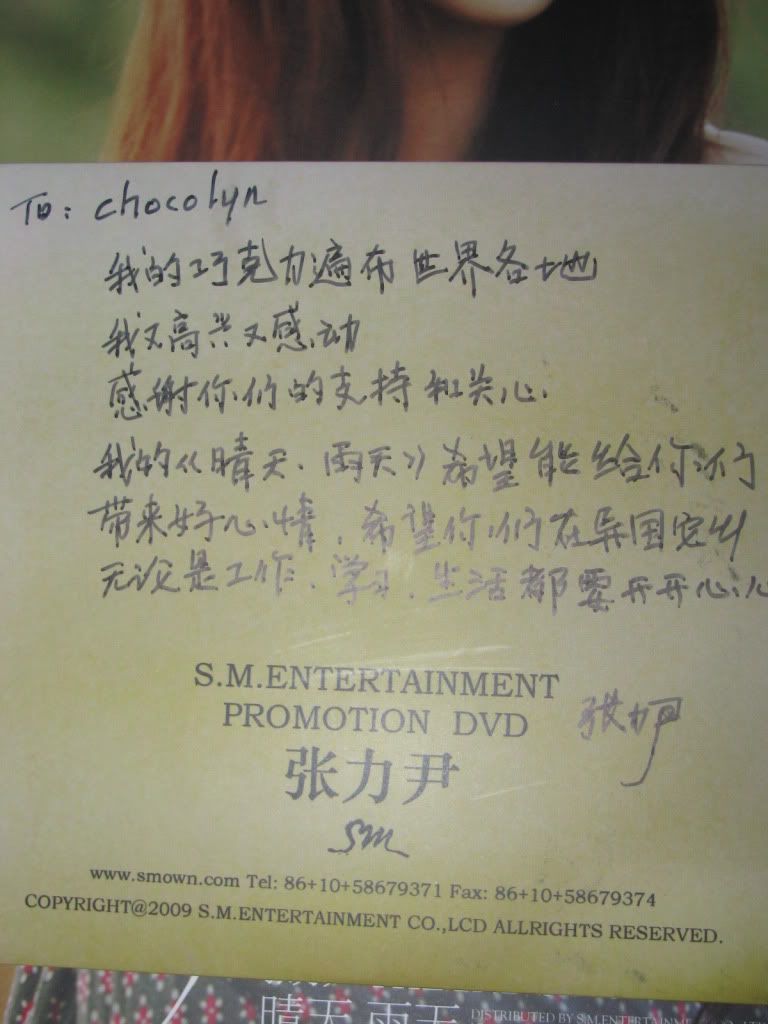 To: chocolyn
我的巧克力遍布世界各地
我又高兴又感动
感谢你们的支持和关心.
我的《晴天.雨天》希望能给你们
带来好心情,希望你们在异国
无论是工作.学习.生活都要开开心心
S.M.ENTERTAINMENT
PROMOTION DVD
张力尹
张力尹
SM
www.smown.com Tel: 86+10+58679371 Fax: 86+10+58679374
COPYRIGHT@2009 S.M.ENTERTAINMENT CO.,LCD ALLRIGHTS RESERVED.
晴天.雨天
DISTRIBUTED BY S.M.ENTERTAINME